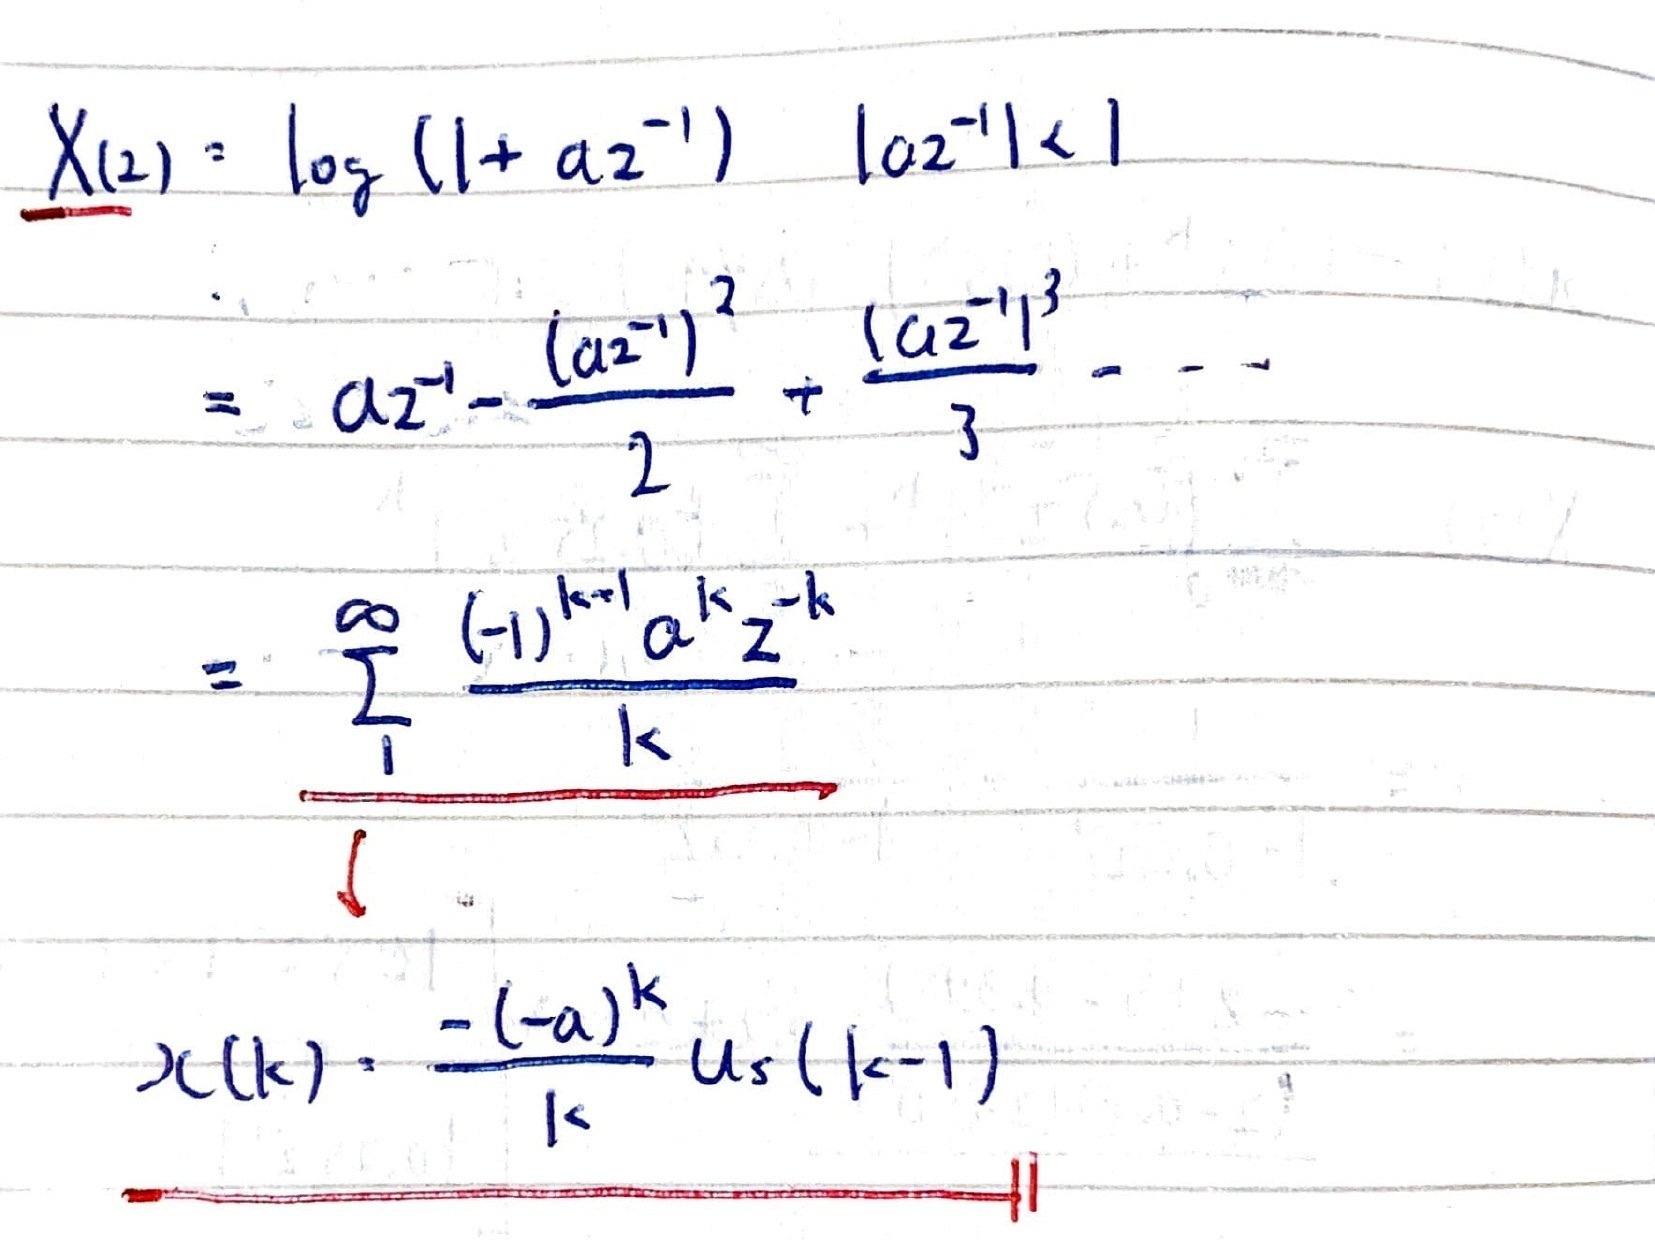 X(z) = log (1 + az⁻¹) |az⁻¹| < 1
= az⁻¹ - (az⁻¹)²/2 + (az⁻¹)³/3 - - -
= ∑₁^∞ (-1)^(k+1) a^k z^(-k) / k
x(k) = -(-a)^k / k us(k-1)